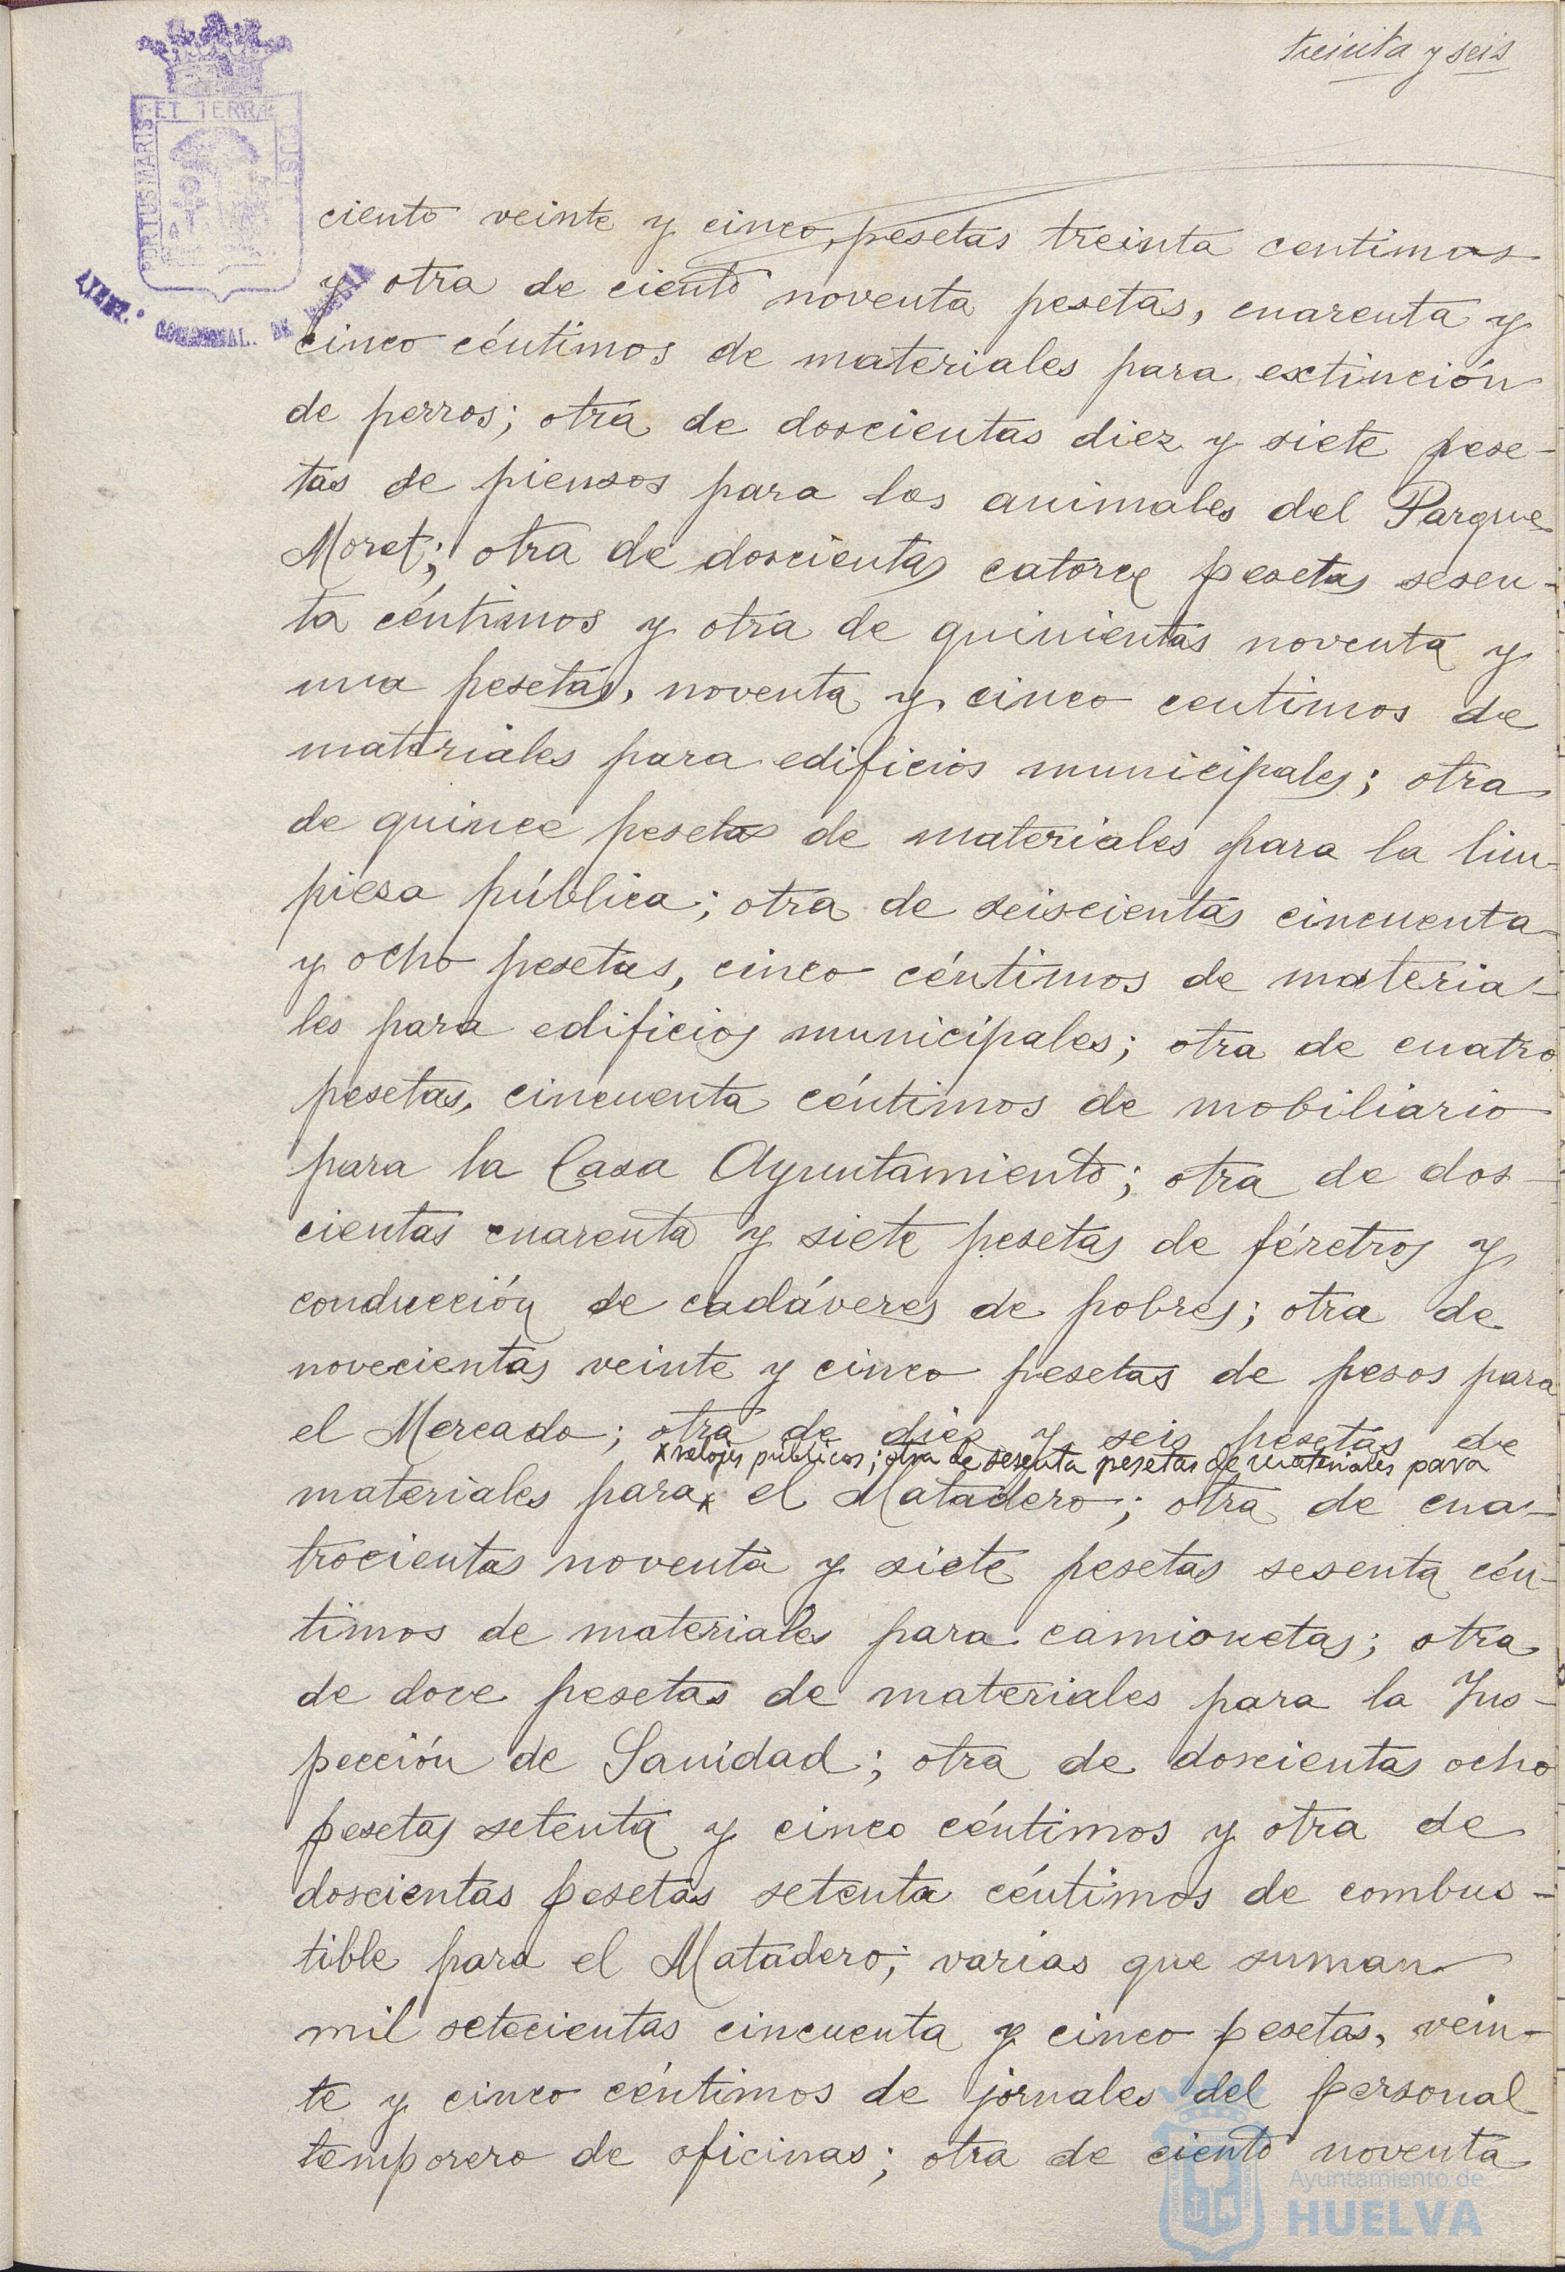 treinta y seis
PORTUS MARIS ET TERRAE CUST
AYUNT.º CONSTITUCIONAL. DE HUELVA
ciento veinte y cinco pesetas treinta centimos
y otra de ciento noventa pesetas, cuarenta y
cinco céntimos de materiales para extinción
de perros; otra de doscientas diez y siete pese-
tas de piensos para los animales del Parque
Moret; otra de doscientas catorce pesetas sesen-
ta céntimos y otra de quinientas noventa y
una pesetas, noventa y cinco centimos de
materiales para edificios municipales; otra
de quince pesetas de materiales para la lim-
piesa pública; otra de seiscientas cincuenta
y ocho pesetas, cinco céntimos de materia-
les para edificios municipales; otra de cuatro
pesetas, cincuenta céntimos de mobiliario
para la Casa Ayuntamiento; otra de dos-
cientas cuarenta y siete pesetas de féretros y
conducción de cadáveres de pobres; otra de
novecientas veinte y cinco pesetas de pesos para
el Mercado; otra de diez y seis pesetas de
x relojes públicos; otra de sesenta pesetas de materiales para
materiales para x el Matadero; otra de cua-
trocientas noventa y siete pesetas sesenta cén-
timos de materiales para camionetas; otra
de doce pesetas de materiales para la Ins-
pección de Sanidad; otra de doscientas ocho
pesetas setenta y cinco céntimos y otra de
doscientas pesetas setenta céntimos de combus-
tible para el Matadero; varias que suman
mil setecientas cincuenta y cinco pesetas, vein-
te y cinco céntimos de jornales del personal
temporero de oficinas; otra de ciento noventa
Ayuntamiento de
HUELVA